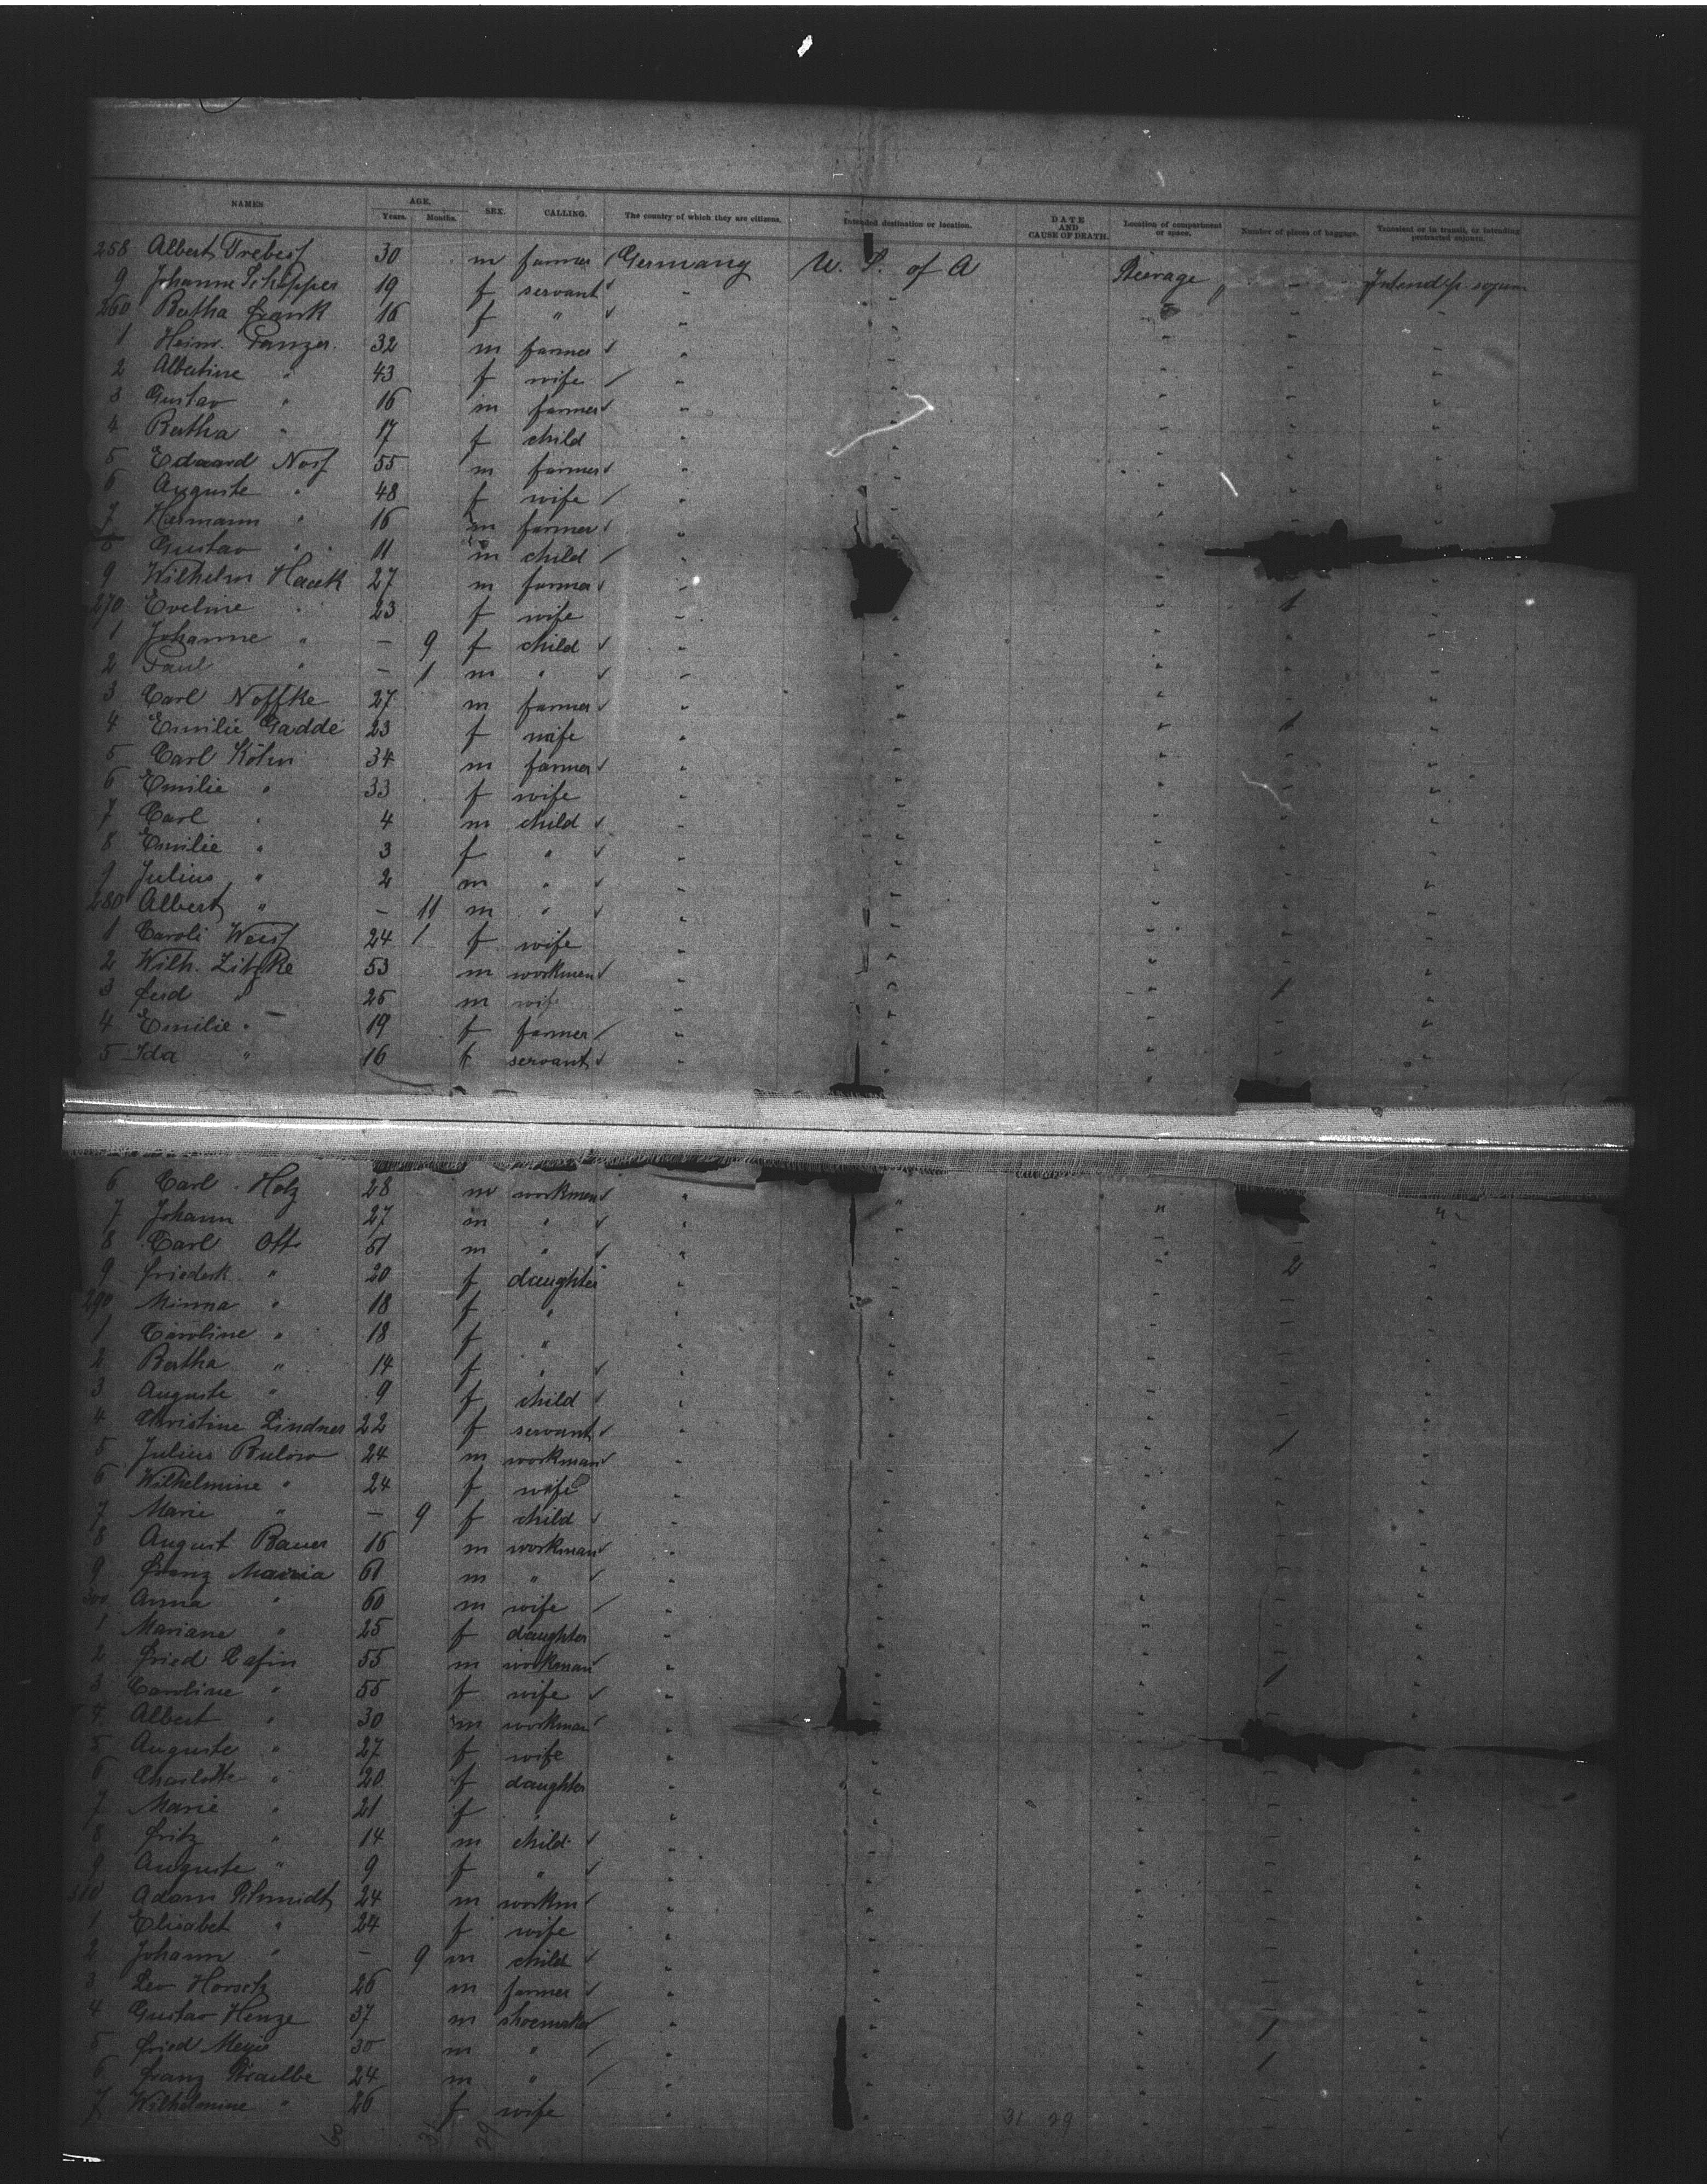 NAMES AGE. SEX. CALLING. The country of which they are citizens. Intended destination or location. DATE AND CAUSE OF DEATH. Location of compartment or space. Number of pieces of baggage. Transient or in transit, or intending protracted sojourn.
Years. Months.
258 Albert Trebess 30 m farmer Germany U. S. of A Steerage
9 Johanne Schepper 19 f servant "
260 Bertha Frank 16 f " "
1 Heinr. Panzer. 32 m farmer "
2 Albertine " 43 f wife "
3 Gustav " 16 m farmer "
4 Bertha " 17 f child "
5 Eduard Noss 55 m farmer "
6 Auguste " 48 f wife "
7 Hermann " 16 m farmer "
8 Gustav " 11 m child "
9 Wilhelm Hauk 27 m farmer "
270 Eveline " 23 f wife " 1
1 Johanne " – 9 f child "
2 Paul " – 1 m " "
3 Carl Noffke 27 m farmer "
4 Emilie Gadde 23 f wife " 1
5 Carl Köhn 34 m farmer "
6 Emilie " 33 f wife "
7 Carl " 4 m child "
8 Emilie " 3 f " "
9 Julius " 2 m " "
280 Albert " – 11 m " "
1 Caroli Weiss 24 f wife "
2 Wilh. Litzke 53 m workmen "
3 Ferd " 25 m wife " 1
4 Emilie " 19 f farmer "
5 Ida " 16 f servant "
6 Carl Holz 28 m workmen "
7 Johann 27 m " "
8 Carl Ott 51 m " "
9 Friederk " 20 f daughter " 2
290 Minna " 18 f " "
1 Caroline " 18 f " "
2 Bertha " 14 f " "
3 Auguste " 9 f child "
4 Christine Lindner 22 f servant "
5 Julius Bulow 24 m workman " 1
6 Wilhelmine " 24 f wife "
7 Marie " – 9 f child "
8 August Bauer 16 m workman "
9 Franz 61 m " "
300 Anna " 60 m wife "
1 Mariane " 25 f daughter "
2 Fried 55 m workman "
3 Caroline " 55 f wife " 1
4 Albert " 30 m workman "
5 Auguste " 27 f wife "
6 Charlotte " 20 f daughter "
7 Marie " 21 f " "
8 Fritz " 14 m child "
9 Auguste " 9 f " "
310 Adam Schmidt 24 m workm "
1 Elisabet " 24 f wife "
2 Johann " – 9 m child "
3 Leo 26 m farmer "
4 Gustav Henze 37 m shoemaker "
5 Fried 30 m " " 1
6 Franz 24 m " " 1
7 Wilhelmine " 26 f wife "
31 29